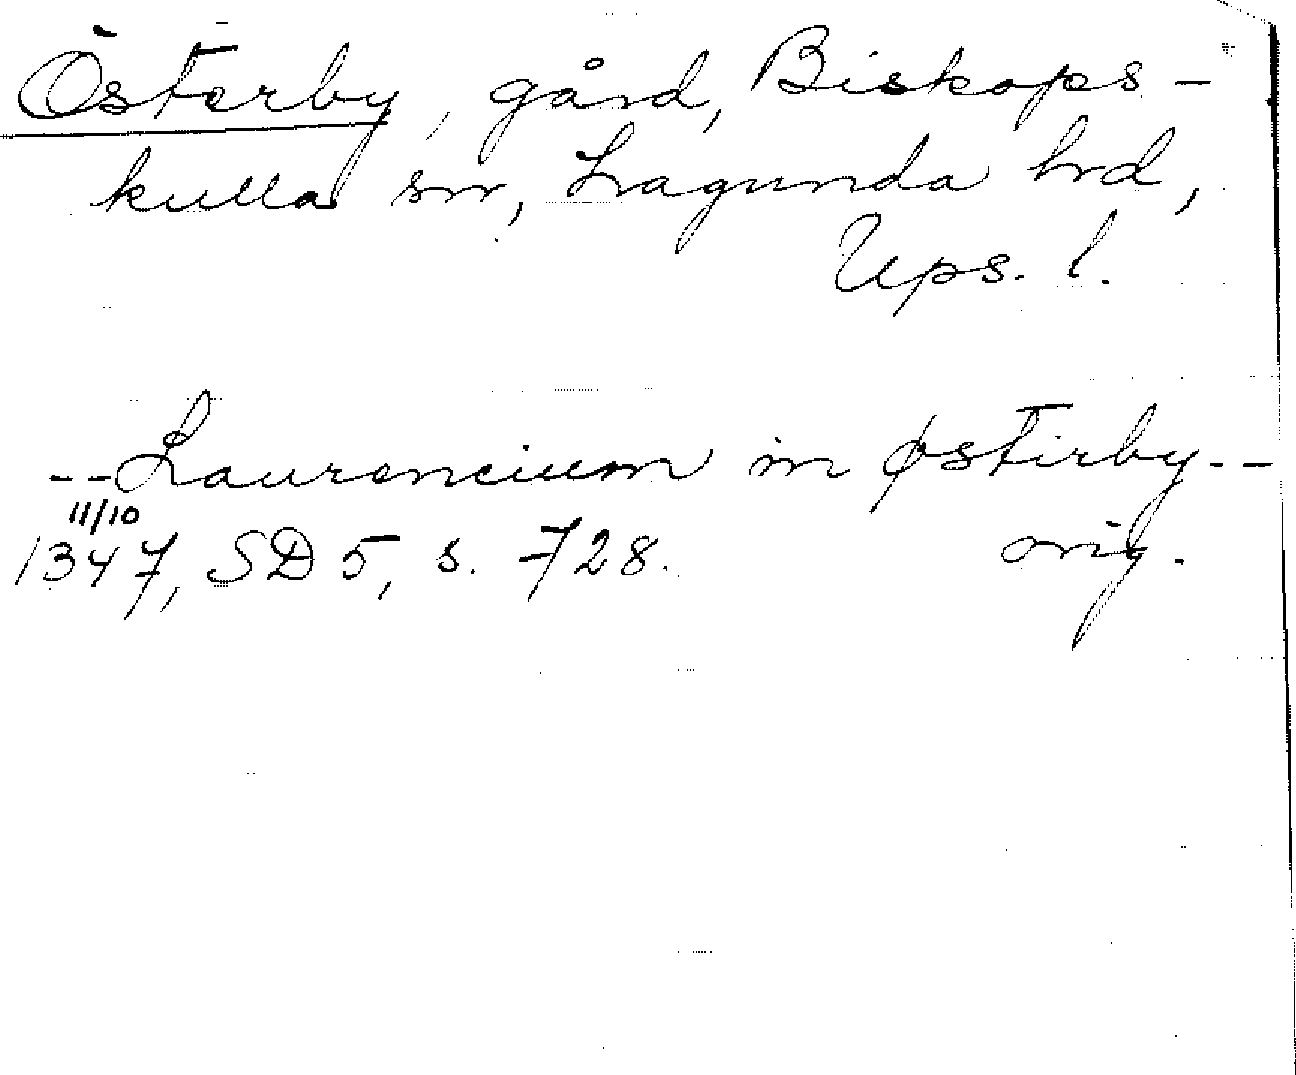 Österby, gård, Biskops-
kulla sn, Lagunda hd,
Ups. l.
--Laurencium in østirby--
11/10
1347, SD 5, s. 728. orig.